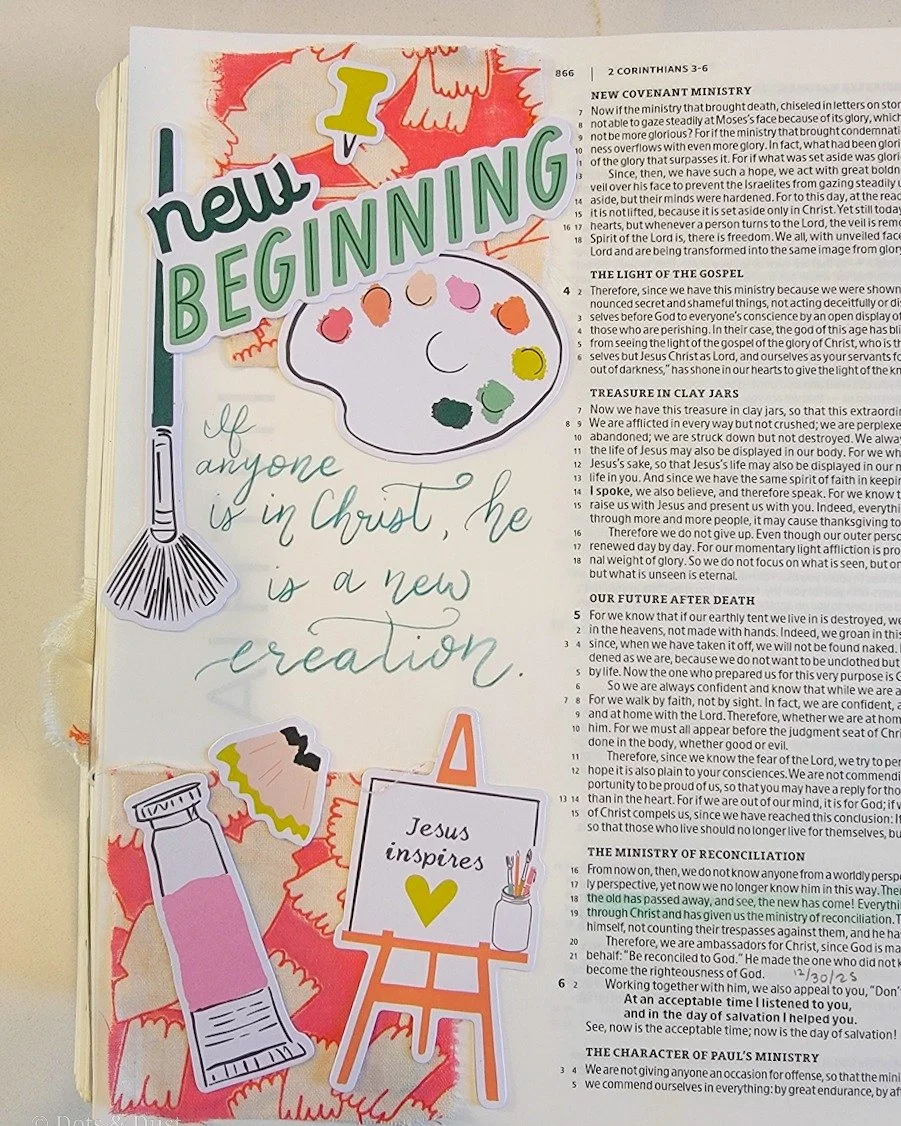 new
BEGINNING
If
anyone
is in Christ, he
is a new
creation.
Jesus
inspires
866 | 2 CORINTHIANS 3-6
NEW COVENANT MINISTRY
7 Now if the ministry that brought death, chiseled in letters on
8 not able to gaze steadily at Moses's face because of its glory,
9 not be more glorious? For if the ministry that brought
10 ness overflows with even more glory. In fact, what had been
11 of the glory that surpasses it. For if what was set aside was
Since, then, we have such a hope, we act with great
13 veil over his face to prevent the Israelites from gazing steadily
14 aside, but their minds were hardened. For to this day, at the
15 it is not lifted, because it is set aside only in Christ. Yet still
16 17 hearts, but whenever a person turns to the Lord, the veil is
18 Spirit of the Lord is, there is freedom. We all, with unveiled
Lord and are being transformed into the same image from
THE LIGHT OF THE GOSPEL
4 2 Therefore, since we have this ministry because we were shown
nounced secret and shameful things, not acting deceitfully or
3 selves before God to everyone's conscience by an open display of
4 those who are perishing. In their case, the god of this age has
5 from seeing the light of the gospel of the glory of Christ, who is
6 selves but Jesus Christ as Lord, and ourselves as your servants
out of darkness," has shone in our hearts to give the light of the
TREASURE IN CLAY JARS
7 Now we have this treasure in clay jars, so that this
8 9 We are afflicted in every way but not crushed; we are
10 abandoned; we are struck down but not destroyed. We
11 the life of Jesus may also be displayed in our body. For we
12 Jesus's sake, so that Jesus's life may also be displayed in our
13 life in you. And since we have the same spirit of faith in
14 I spoke, we also believe, and therefore speak. For we know
15 raise us with Jesus and present us with you. Indeed,
through more and more people, it may cause thanksgiving to
16 Therefore we do not give up. Even though our outer
17 renewed day by day. For our momentary light affliction is
18 nal weight of glory. So we do not focus on what is seen, but
but what is unseen is eternal.
OUR FUTURE AFTER DEATH
5 For we know that if our earthly tent we live in is destroyed,
2 in the heavens, not made with hands. Indeed, we groan in
3 4 since, when we have taken it off, we will not be found naked.
dened as we are, because we do not want to be unclothed but
5 by life. Now the one who prepared us for this very purpose is
6 So we are always confident and know that while we are
7 8 For we walk by faith, not by sight. In fact, we are confident,
9 and at home with the Lord. Therefore, whether we are at
10 him. For we must all appear before the judgment seat of
done in the body, whether good or evil.
11 Therefore, since we know the fear of the Lord, we try to
12 hope it is also plain to your consciences. We are not
portunity to be proud of us, so that you may have a reply for
13 14 than in the heart. For if we are out of our mind, it is for God; if
15 of Christ compels us, since we have reached this conclusion:
so that those who live should no longer live for themselves,
THE MINISTRY OF RECONCILIATION
16 From now on, then, we do not know anyone from a worldly
17 ly perspective, yet now we no longer know him in this way.
18 the old has passed away, and see, the new has come!
19 through Christ and has given us the ministry of reconciliation.
himself, not counting their trespasses against them, and he
20 Therefore, we are ambassadors for Christ, since God is
21 behalf: "Be reconciled to God." He made the one who did not
become the righteousness of God. 12/30/25
6 2 Working together with him, we also appeal to you,
At an acceptable time I listened to you,
and in the day of salvation I helped you.
See, now is the acceptable time; now is the day of salvation!
THE CHARACTER OF PAUL'S MINISTRY
3 4 We are not giving anyone an occasion for offense, so that the
5 we commend ourselves in everything: by great endurance, by
© Dots & Dust